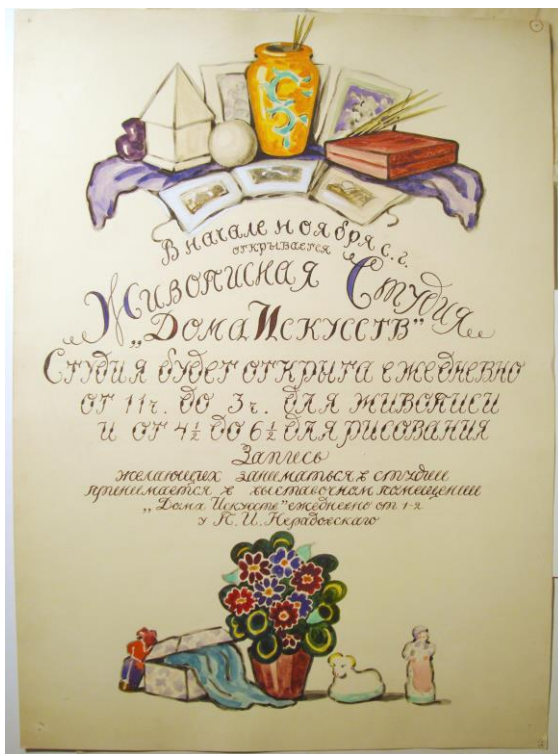 В начале ноября с. г.
открывается
Живописная Студия
„Дома Искусств"
Студия будет открыта ежедневно
от 11 ч. до 3 ч. для живописи
и от 4 1/2 до 6 1/2 для рисования
Запись
желающих заниматься в студии
принимается в выставочном помещении
„Дома Искусств" ежедневно от 1-я
у П. И. Нерадовскаго